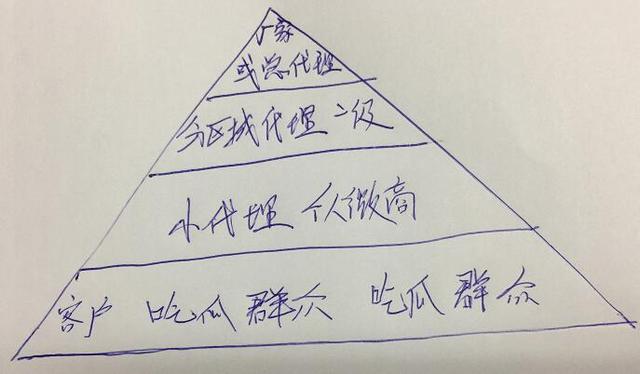 厂家
或总代理
分区域代理 二级
小代理 个人微商
客户 吃瓜群众 吃瓜群众